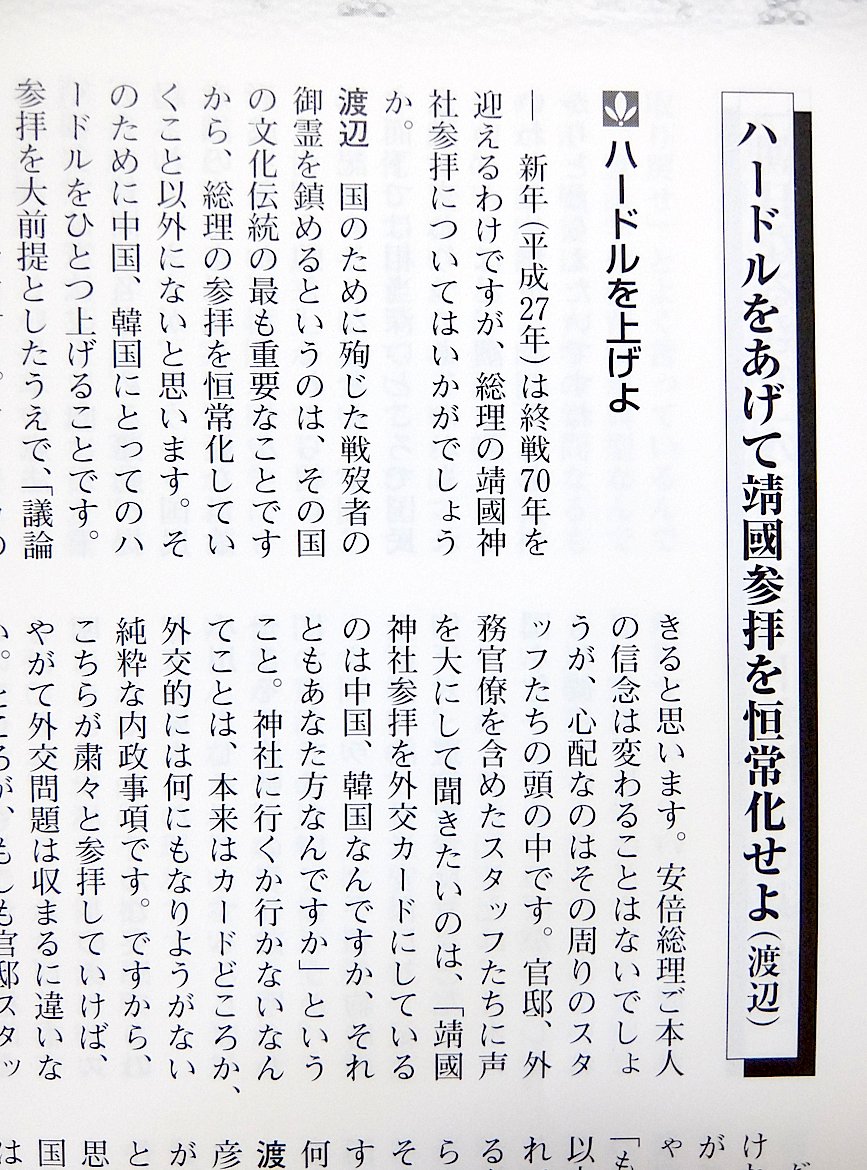 ハードルをあげて靖國参拝を恒常化せよ(渡辺)
ハードルを上げよ
― 新年(平成27年)は終戦70年を
迎えるわけですが、総理の靖國神
社参拝についてはいかがでしょう
か。
渡辺　国のために殉じた戦歿者の
御霊を鎮めるというのは、その国
の文化伝統の最も重要なことです
から、総理の参拝を恒常化してい
くこと以外にないと思います。そ
のために中国、韓国にとってのハ
ードルをひとつ上げることです。
参拝を大前提としたうえで、「議論
きると思います。安倍総理ご本人
の信念は変わることはないでしょ
うが、心配なのはその周りのスタ
ッフたちの頭の中です。官邸、外
務官僚を含めたスタッフたちに声
を大にして聞きたいのは、「靖國
神社参拝を外交カードにしている
のは中国、韓国なんですか、それ
ともあなた方なんですか」という
こと。神社に行くか行かないなん
てことは、本来はカードどころか、
外交的には何にもなりようがない
純粋な内政事項です。ですから、
こちらが粛々と参拝していけば、
やがて外交問題は収まるに違いな
い。ところが、もしも官邸スタッ
け
が
ゃ
「も
以
れ
る
ら
そ
す
何
渡
彦
が
と
思
国
は